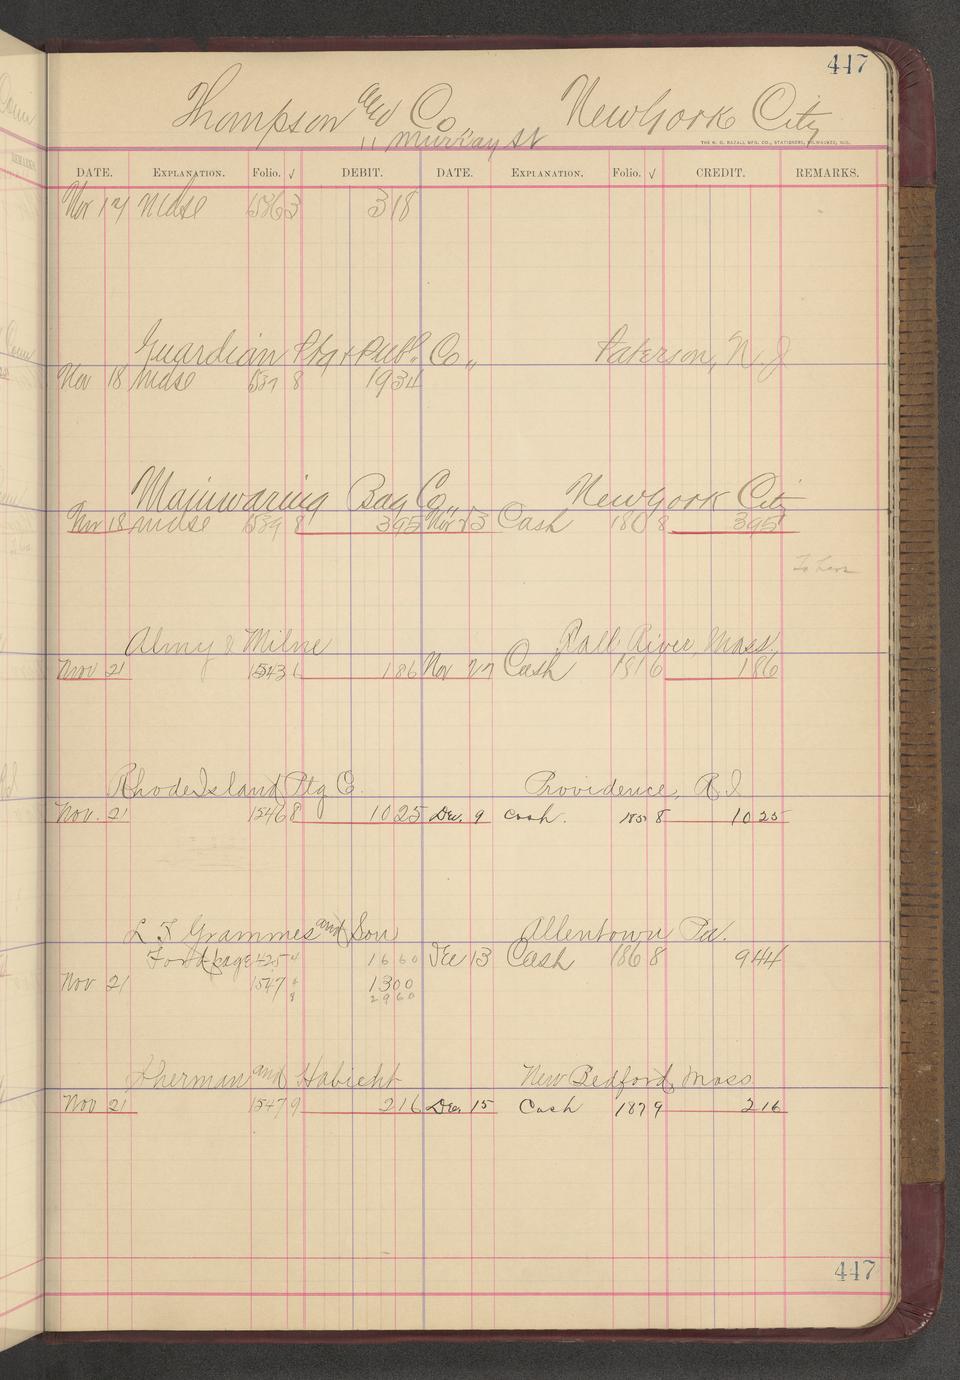 447
Thompson and Co New York City
11 Murray St
THE H. G. RAZALL MFG. CO., STATIONERS, MILWAUKEE, WIS.
DATE. EXPLANATION. Folio. √ DEBIT. DATE. EXPLANATION. Folio. √ CREDIT. REMARKS.
Nov 17 Mdse 3 318
Guardian Ptg & Publ. Co., Paterson, N. J
Nov 18 Mdse 8 1934
Mainwaring Bag Co., New York City
Nov 18 Mdse 539 8 395 Nov 23 Cash 180 8 395
Almy & Milne Fall River, Mass.
Nov 21 1543 186 Nov 27 Cash 181 6 186
Rhode Island Ptg C. Providence, R. I
Nov. 21 1546 8 1025 Dec. 9 Cash. 185 8 1025
L F Grammes and Son Allentown Pa.
425 1660 Dec 13 Cash 186 8 944
Nov 21 1547 1300
8 2960
Sherman and Habicht New Bedford, Mass
Nov 21 1547 9 216 Dec. 15 Cash 187 9 216
447